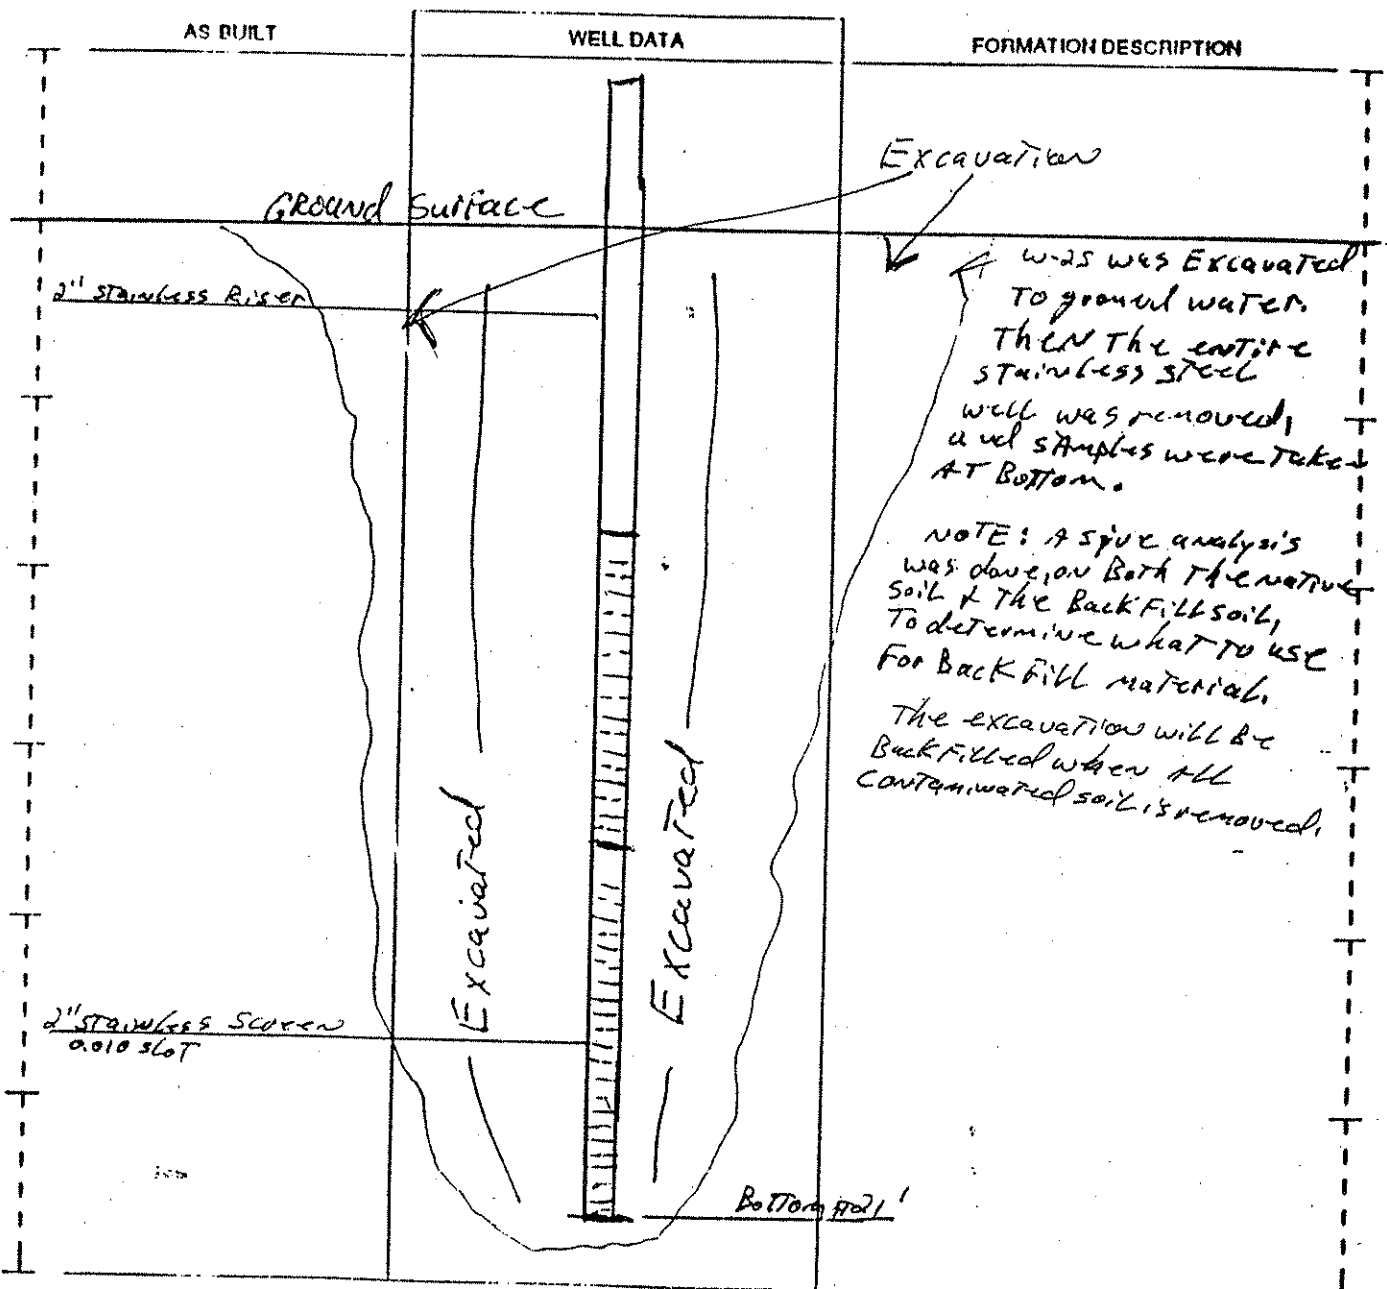 AS BUILT
WELL DATA
FORMATION DESCRIPTION
Excavation
GROUND Surface
2" Stainless Riser
W-25 was Excavated
To ground water.
Then The entire
stainless steel
well was removed,
and sAmples were Taken
AT Bottom.
NOTE: A sive analysis
was done, on Both The native
soil & The BackFill soil,
To determine what To use
For BackFill material.
The excavation will Be
BackFilled when All
contaminated soil is removed.
Excavated
Excavated
2" stainless Screen
0.010 sloT
Bottom 21'